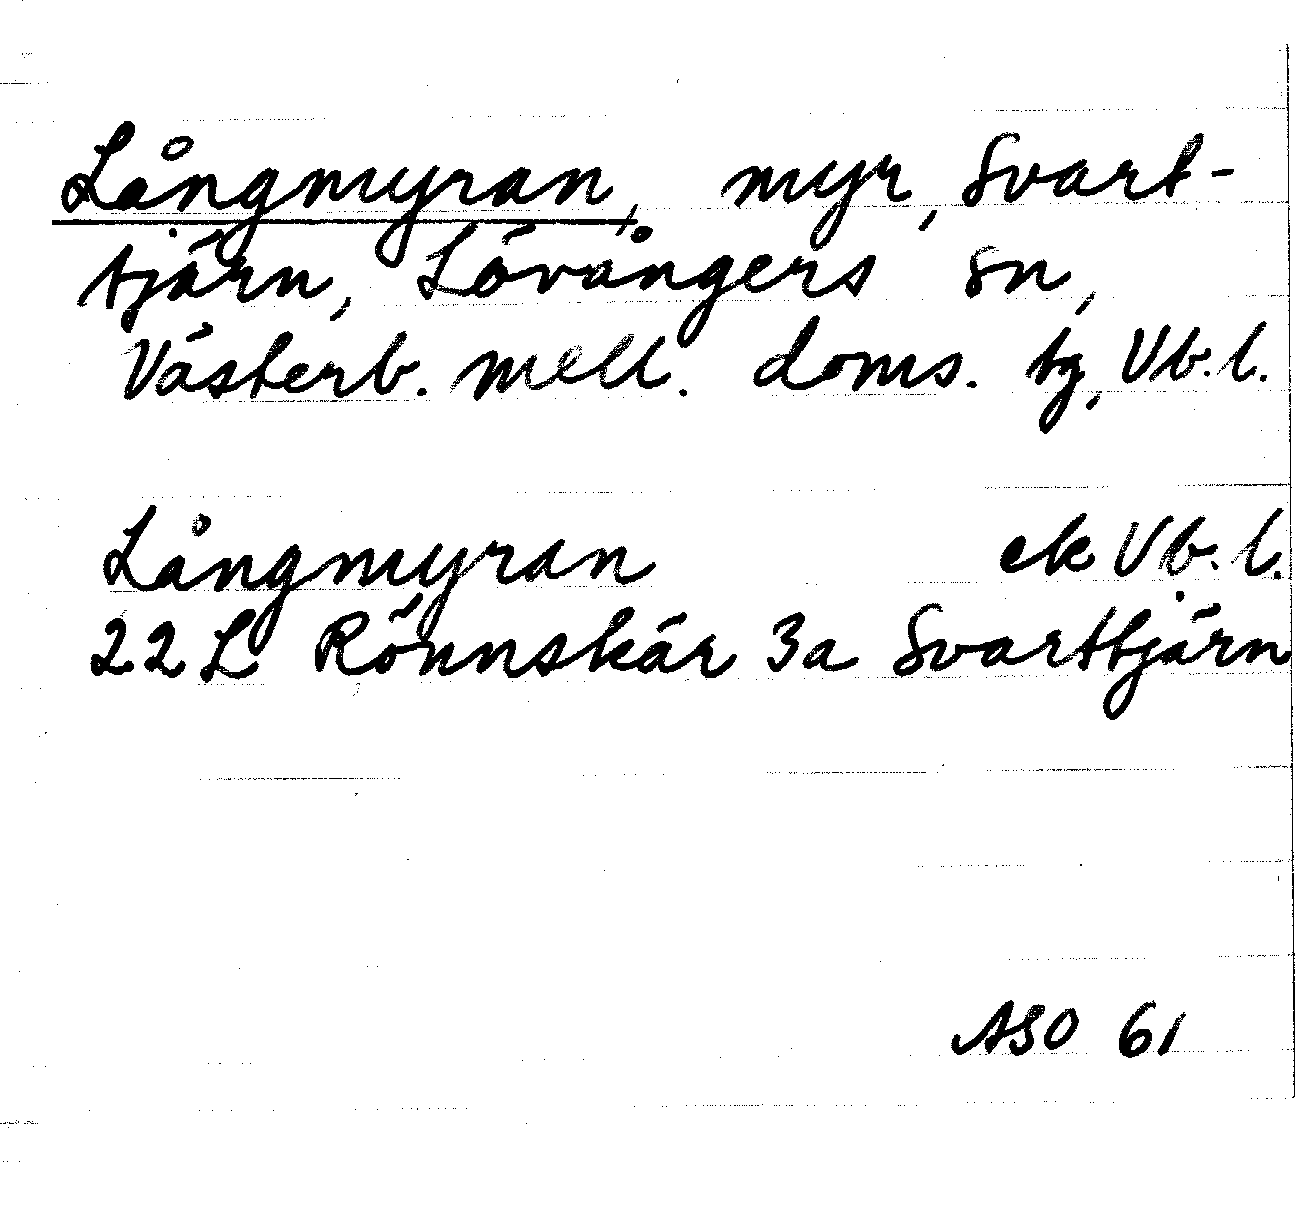 Långmyran, myr, Svart-
tjärn, Lövångers sn,
Västerb. mell. doms. tg, Vb.l.
Långmyran ek Vb.l.
22 L Rönnskär 3a Svarttjärn
ASO 61